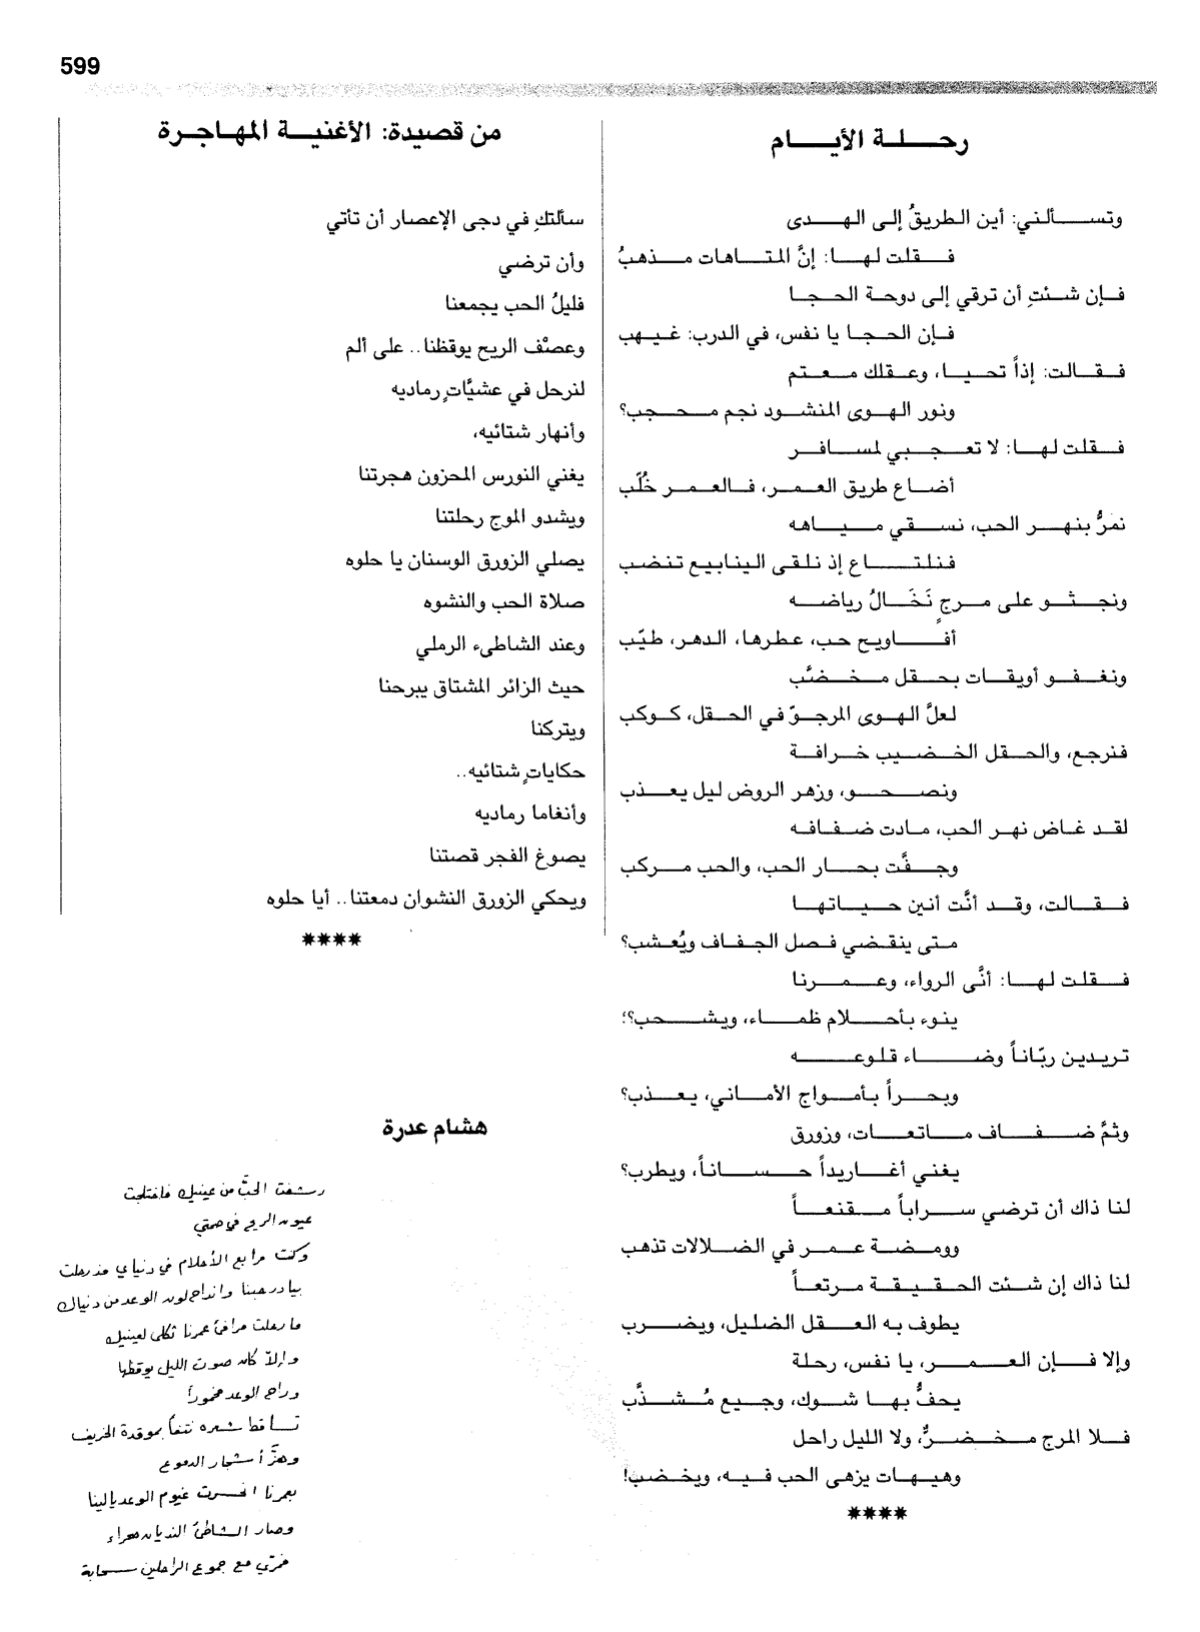 599
رحلة الأيام
وتسألني: أين الطريقُ إلى الهدى
فقلت لها: إنَّ المتاهات مذهبُ
فإن شئتِ أن ترقي إلى دوحة الحجا
فإن الحجا يا نفس، في الدرب: غيهب
فقالت: إذاً تحيا، وعقلك معتم
ونور الهوى المنشود نجم محجب؟
فقلت لها: لا تعجبي لمسافر
أضاع طريق العمر، فالعمر خُلَّب
نمرُّ بنهر الحب، نسقي مياهه
فنلتاع إذ نلقى الينابيع تنضب
ونجثو على مرجٍ نَخَالُ رياضه
أفاويح حب، عطرها، الدهر، طيّب
ونغفو أويقات بحقل مخضَّب
لعلَّ الهوى المرجوّ في الحقل، كوكب
فنرجع، والحقل الخضيب خرافة
ونصحو، وزهر الروض ليل يعذب
لقد غاض نهر الحب، مادت ضفافه
وجفَّت بحار الحب، والحب مركب
فقالت، وقد أنَّت أنين حياتها
متى ينقضي فصل الجفاف ويُعشب؟
فقلت لها: أنَّى الرواء، وعمرنا
ينوء بأحلام ظماء، ويشحب؟!
تريدين ربّاناً وضاء قلوعه
وبحراً بأمواج الأماني، يعذب؟
وثمَّ ضفاف ماتعات، وزورق
يغني أغاريداً حساناً، ويطرب؟
لنا ذاك أن ترضي سراباً مقنعاً
وومضة عمر في الضلالات تذهب
لنا ذاك إن شئت الحقيقة مرتعاً
يطوف به العقل الضليل، ويضرب
وإلا فإن العمر، يا نفس، رحلة
يحفُّ بها شوك، وجيع مُشذَّب
فلا المرج مخضرٌّ، ولا الليل راحل
وهيهات يزهى الحب فيه، ويخضب!
****
من قصيدة: الأغنية المهاجرة
سألتكِ في دجى الإعصار أن تأتي
وأن ترضي
فليلُ الحب يجمعنا
وعصْف الريح يوقظنا.. على ألم
لنرحل في عشيَّاتٍ رماديه
وأنهار شتائيه،
يغني النورس المحزون هجرتنا
ويشدو الموج رحلتنا
يصلي الزورق الوسنان يا حلوه
صلاة الحب والنشوه
وعند الشاطىء الرملي
حيث الزائر المشتاق يبرحنا
ويتركنا
حكاياتٍ شتائيه..
وأنغاما رماديه
يصوغ الفجر قصتنا
ويحكي الزورق النشوان دمعتنا.. أيا حلوه
****
هشام عدرة
رشفت الحبّ من عينيك فاختلجت
عيون الريح في صمتي
وكنت مرابع الأحلام في دنياي مذ رحلت
بيادر حبنا وانداح لون الوعد من دنياك
ما رحلت مرافئ عمرنا ثكلى لعينيك
وإلاّ كان صوت الليل يوقظها
وراح الوعد مخموراً
تساقط شعره نتفاً بموقدة الخريف
وهزّ أشجار الدموع
بعمرنا انحسرت غيوم الوعد يا لينا
وصار الشاطئ النديان صحراء
فمرّي مع جموع الراحلين سحابة